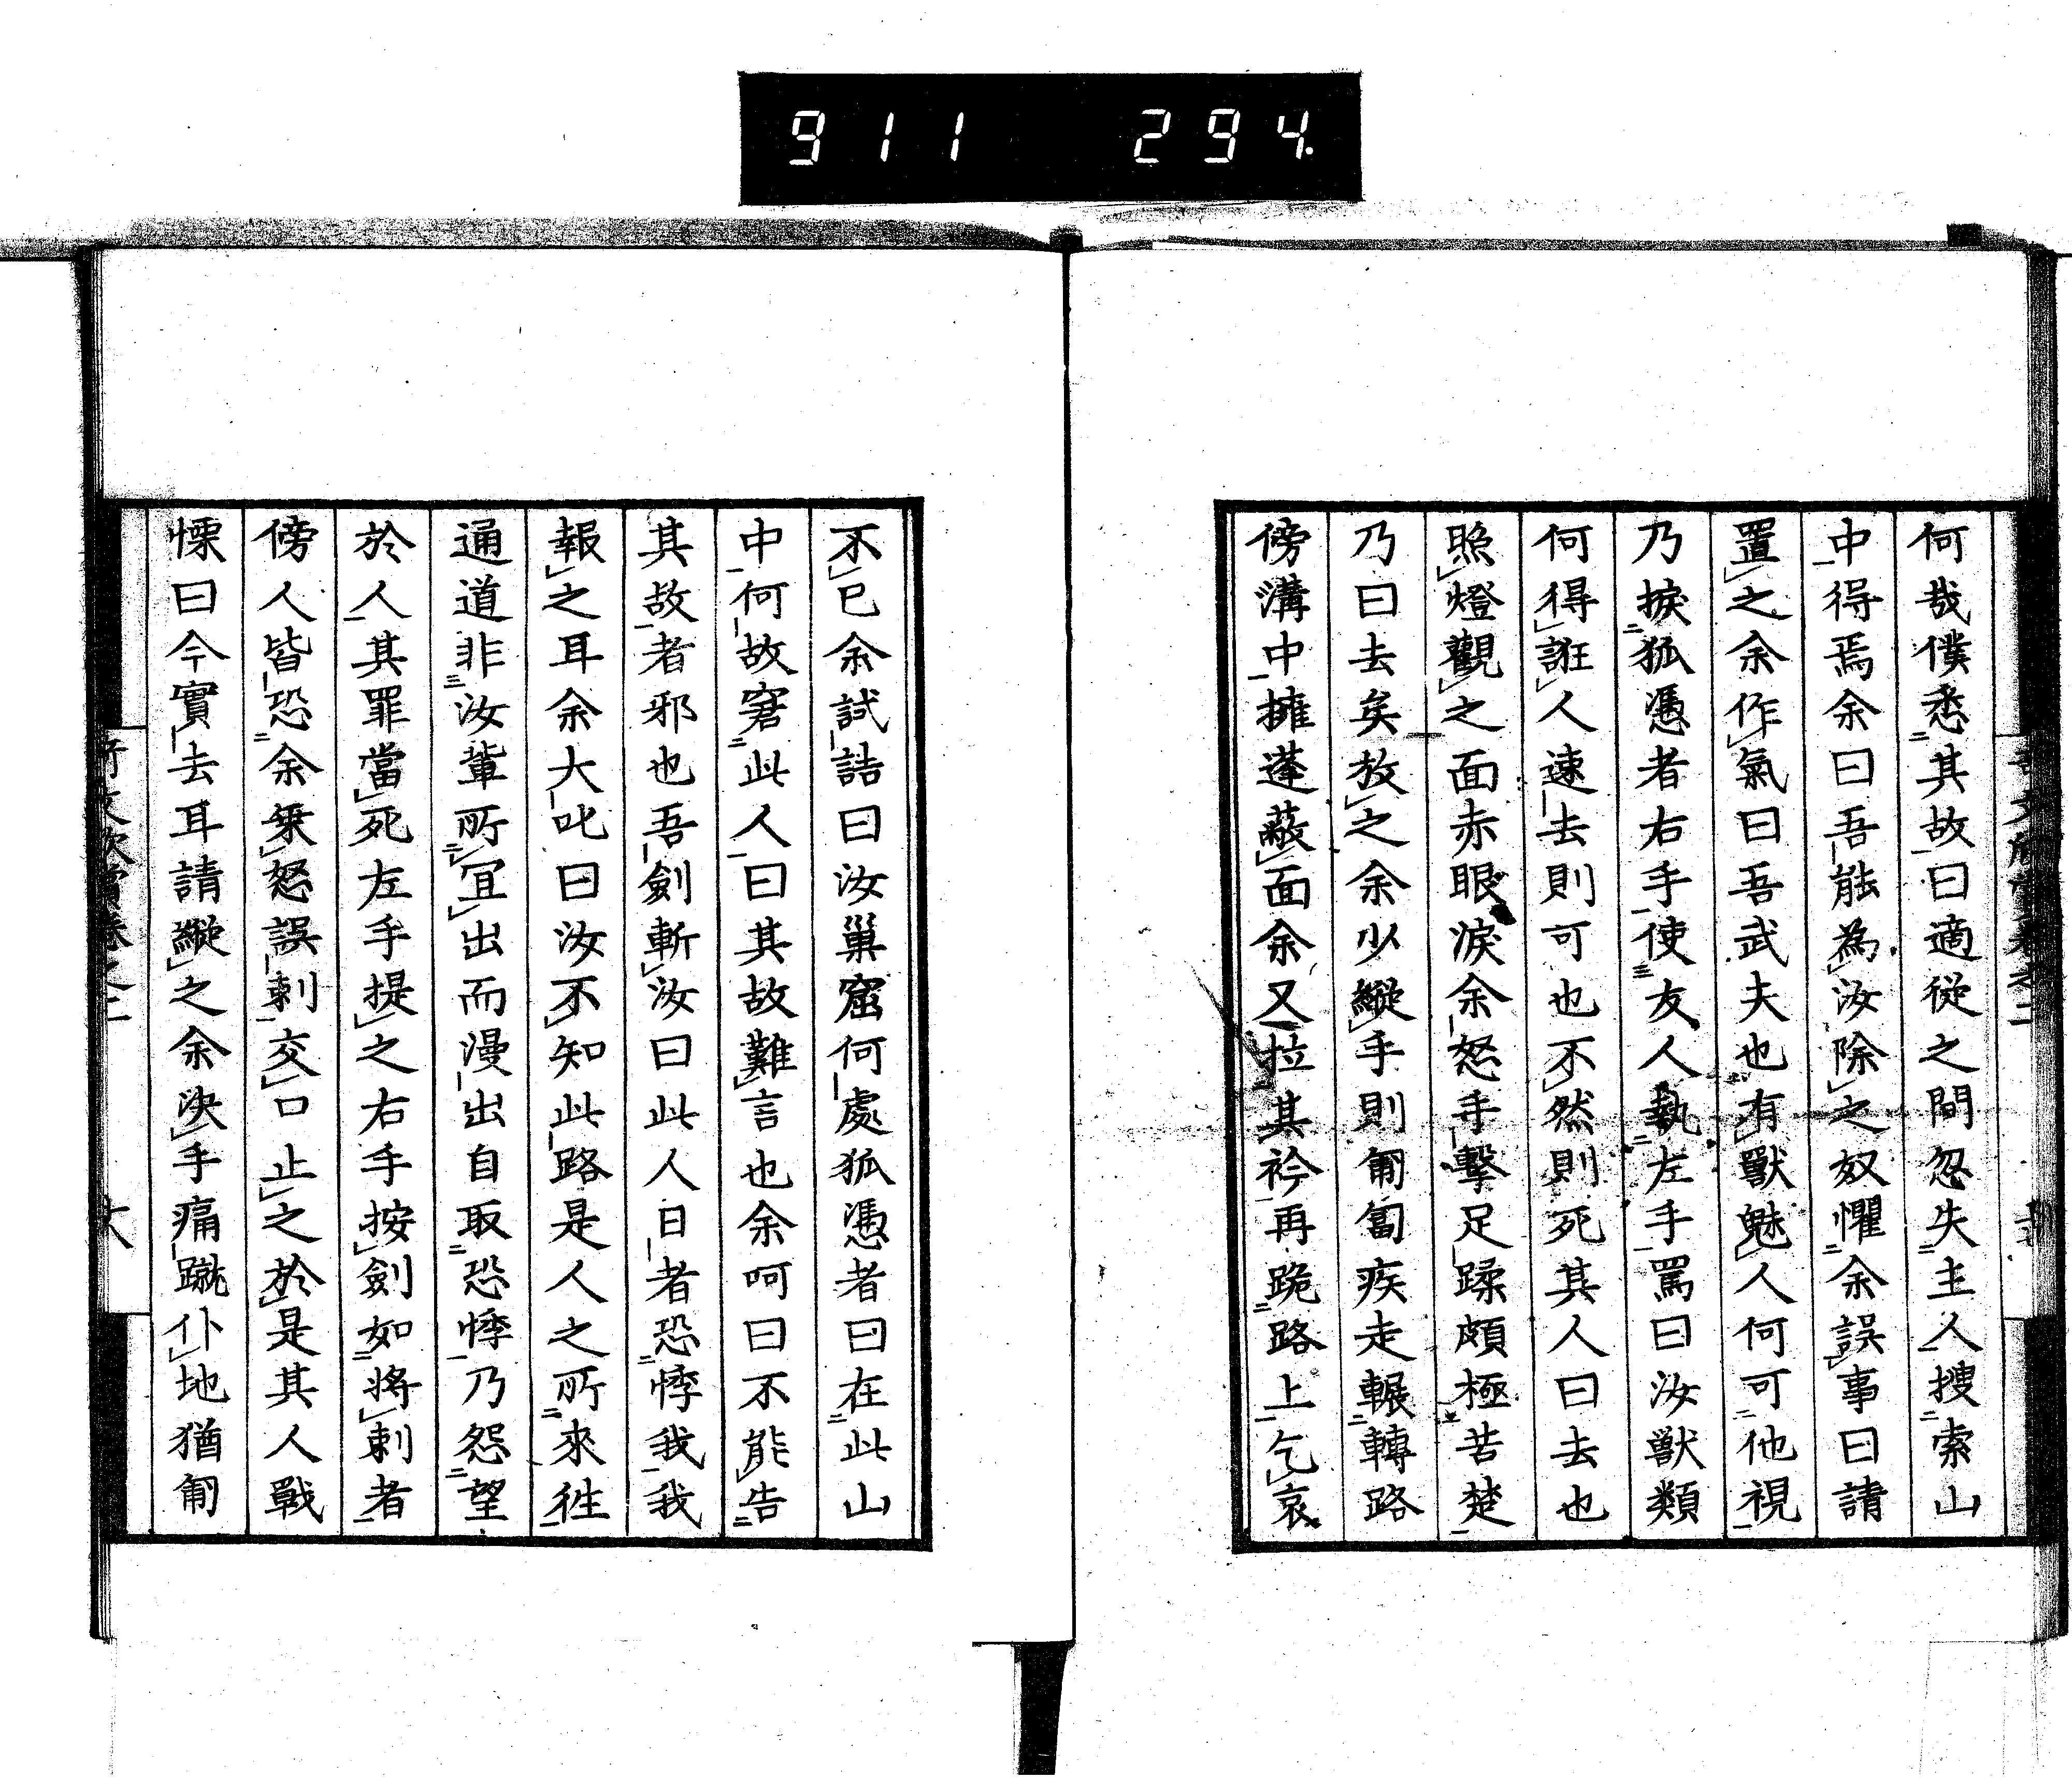 911 294.
何哉僕悉其故曰適從之間忽失主人搜索山
中得焉余曰吾能為汝除之奴懼余誤事曰請
置之余作氣曰吾武夫也有獸魅人何可他視
乃捩狐憑者右手使友人執左手罵曰汝獸類
何得誑人速去則可也不然則死其人曰去也
照燈觀之面赤眼淚余怒手擊足蹂頗極苦楚
乃曰去矣放之余少縱手則匍匐疾走輾轉路
傍溝中擁蓬蔽面余又拉其衿再跪路上乞哀
不已余試詰曰汝巢窟何處狐憑者曰在此山
中何故窘此人曰其故難言也余呵曰不能告
其故者邪也吾劍斬汝曰此人日者恐悸我我
報之耳余大叱曰汝不知此路是人之所來徃
通道非汝輩所宜出而漫出自取恐悸乃怨望
於人其罪當死左手提之右手按劍如將刺者
傍人皆恐余乗怒誤刺交口止之於是其人戰
慄曰今實去耳請縱之余决手痛蹴仆地猶匍